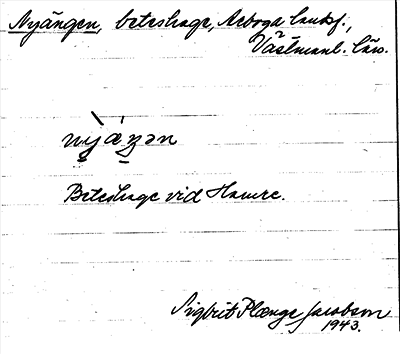 Nyängen, beteshage, Arboga landsf.,
Västmanl. län.
Beteshage vid Hamre.
Sigbrit Plænge Jacobson
1943.